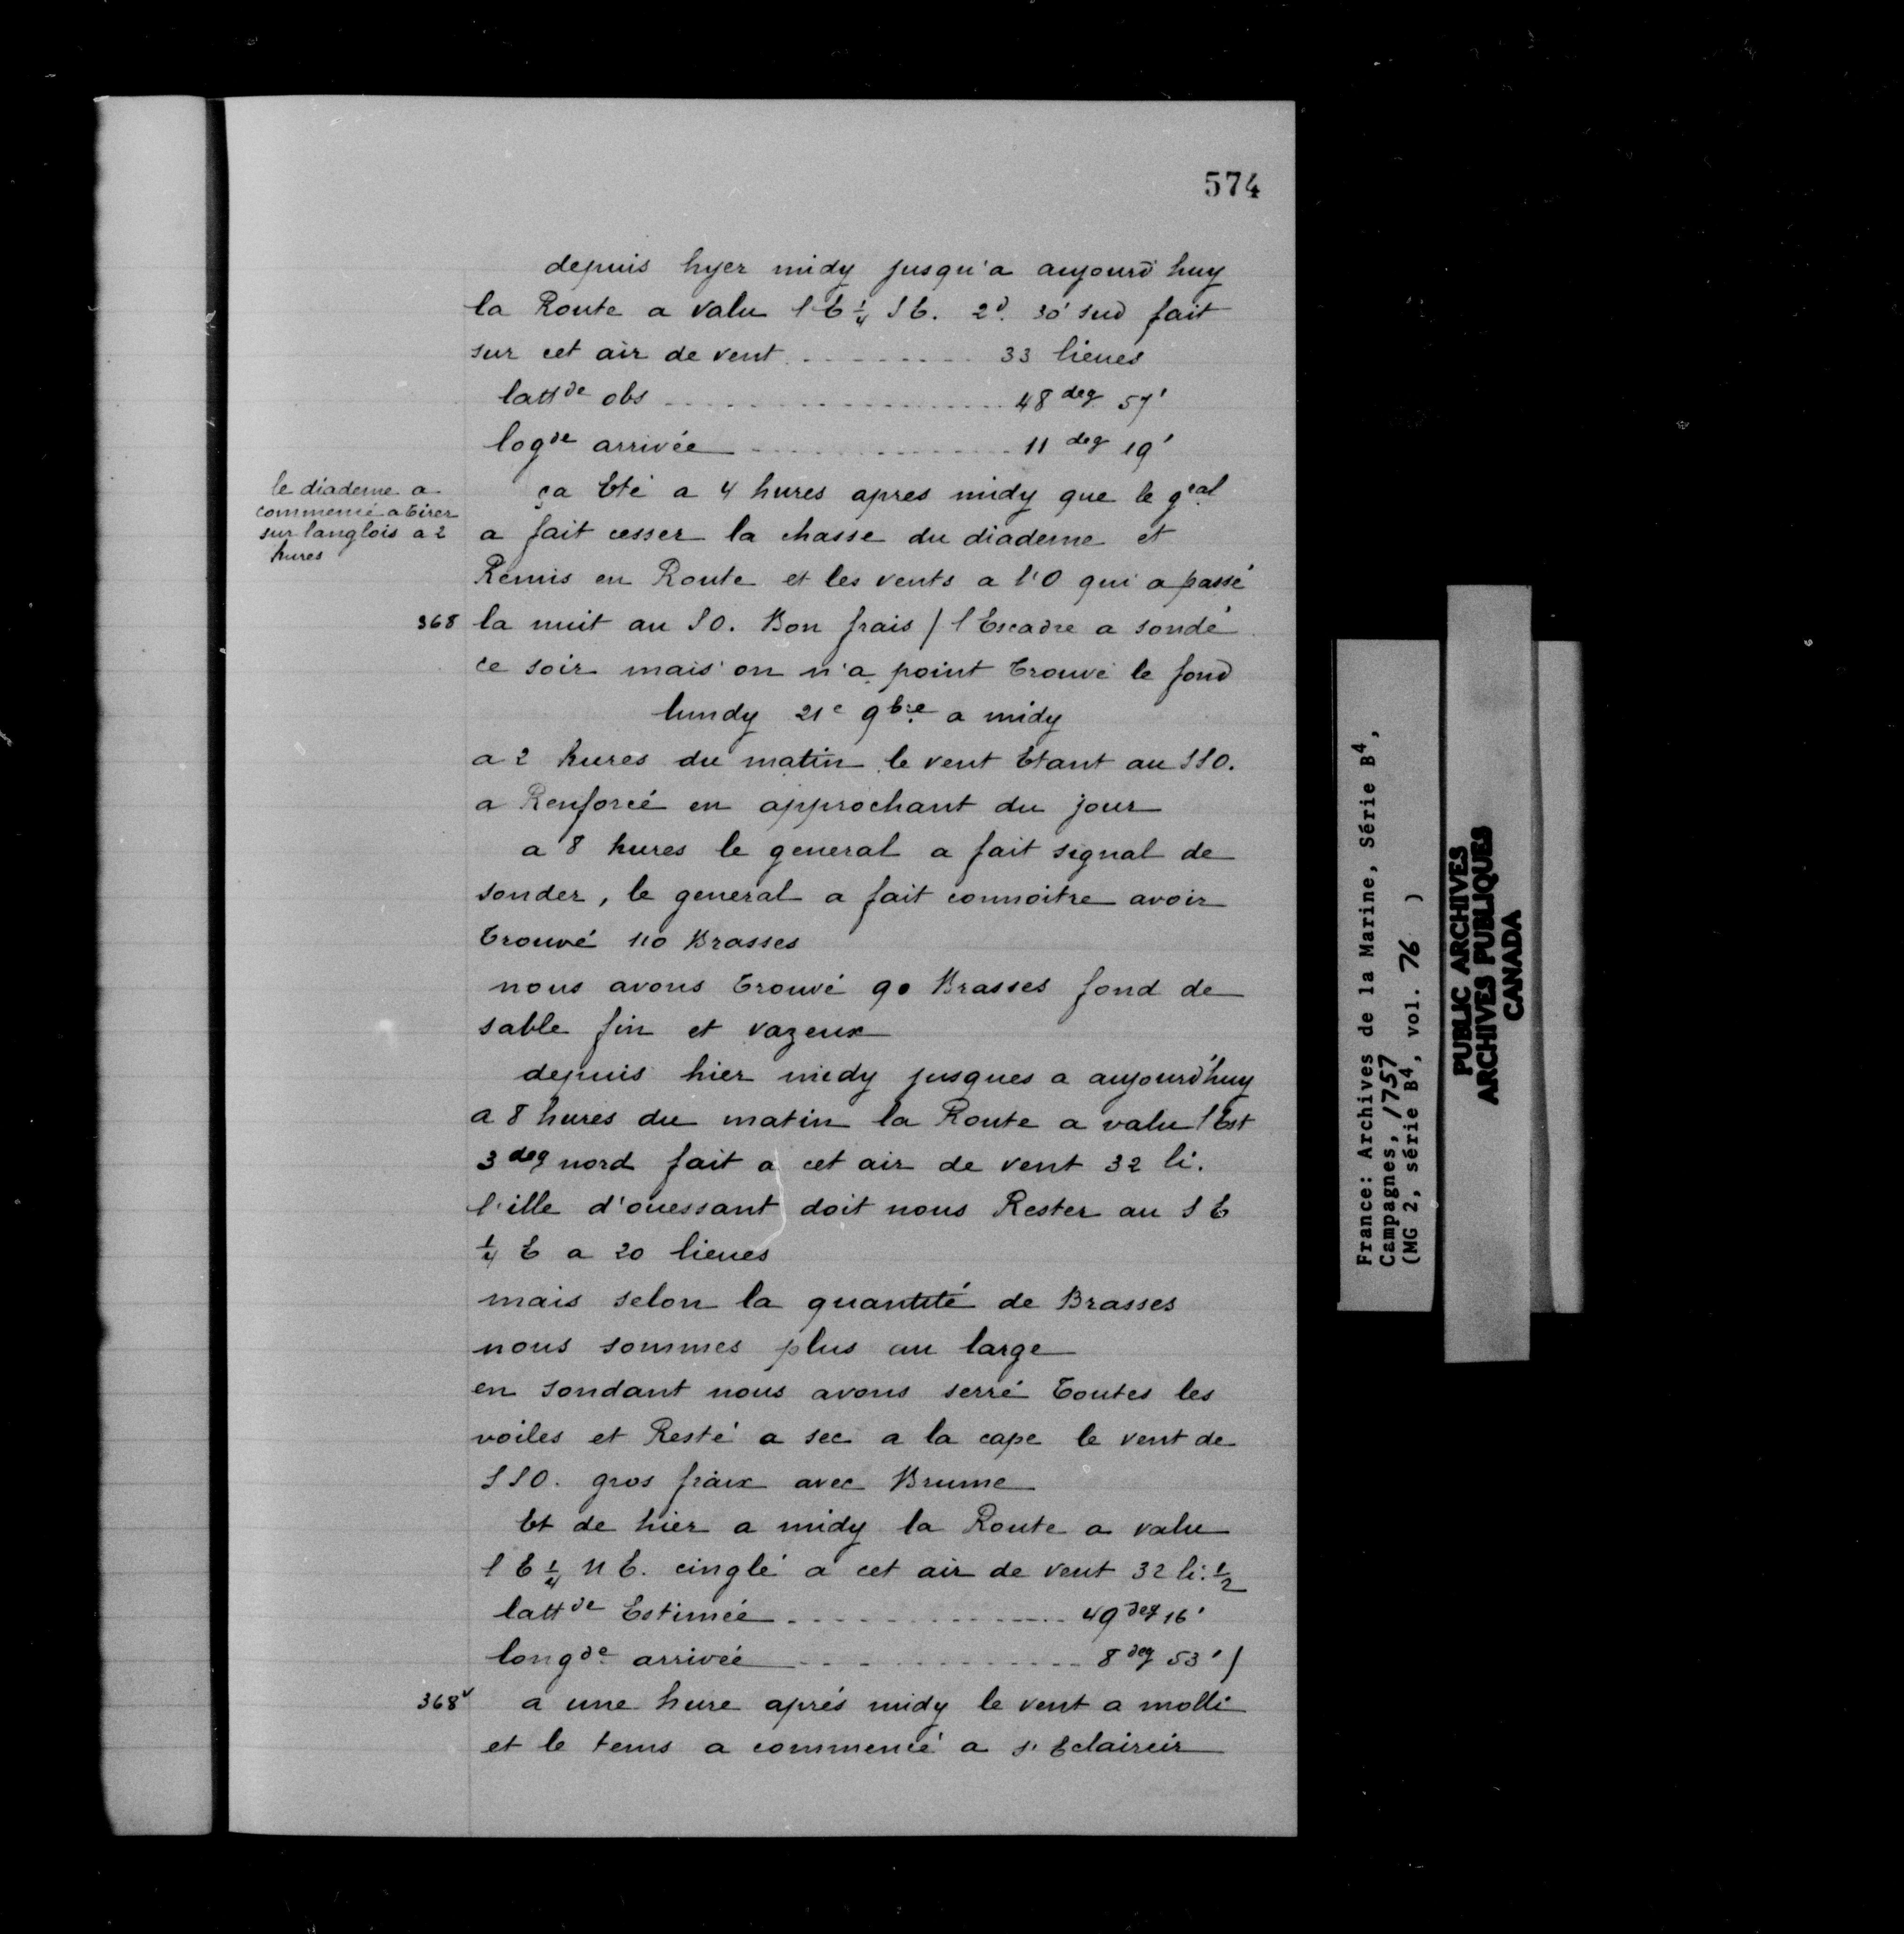 574
depuis hyer midy jusqu'a aujourd huy
la Route a valu l E ¼ S E. 2ᵈ. 30' sud fait
sur cet air de vent ......... 33 lieues
lattᵈᵉ obs .................. 48 deg 57'
logᵈᵉ arrivée .............. 11 deg 19'
le diademe a
commencé a tirer
sur langlois a 2
hures
ça Eté a 4 hures apres midy que le gʳᵃˡ
a fait cesser la chasse du diademe et
Remis en Route et les vents a l'O qui a passé
368 la nuit au SO. Bon frais / l Escadre a sondé
ce soir mais on n'a point trouvé le fond
lundy 21ᵉ 9bʳᵉ a midy
a 2 hures du matin le vent Etant au SSO.
a Renforcé en approchant du jour
a 8 hures le general a fait signal de
sonder, le general a fait connoitre avoir
trouvé 110 Brasses
nous avons trouvé 90 Brasses fond de
sable fin et vazeux
depuis hier midy jusques a aujourd'huy
a 8 hures du matin la Route a valu l'Est
3 deg nord fait a cet air de vent 32 li.
l'ille d'ouessant doit nous Rester au S E
¼ E a 20 lieues
mais selon la quantité de Brasses
nous sommes plus au large
en sondant nous avons serré toutes les
voiles et Resté a sec a la cape le vent de
SSO. gros fraix avec Brume
Et de hier a midy la Route a valu
l E ¼ N E. cinglé a cet air de vent 32 li. ½
lattᵈᵉ Estimée .............. 49 deg 16'
longᵈᵉ arrivée .............. 8 deg 53' /
368ᵛ a une hure aprés midy le vent a molli
et le tems a commencé a s'Eclaircir
France: Archives de la Marine, Série B⁴,
Campagnes, 1757
(MG 2, série B⁴, vol. 76 )
PUBLIC ARCHIVES
ARCHIVES PUBLIQUES
CANADA